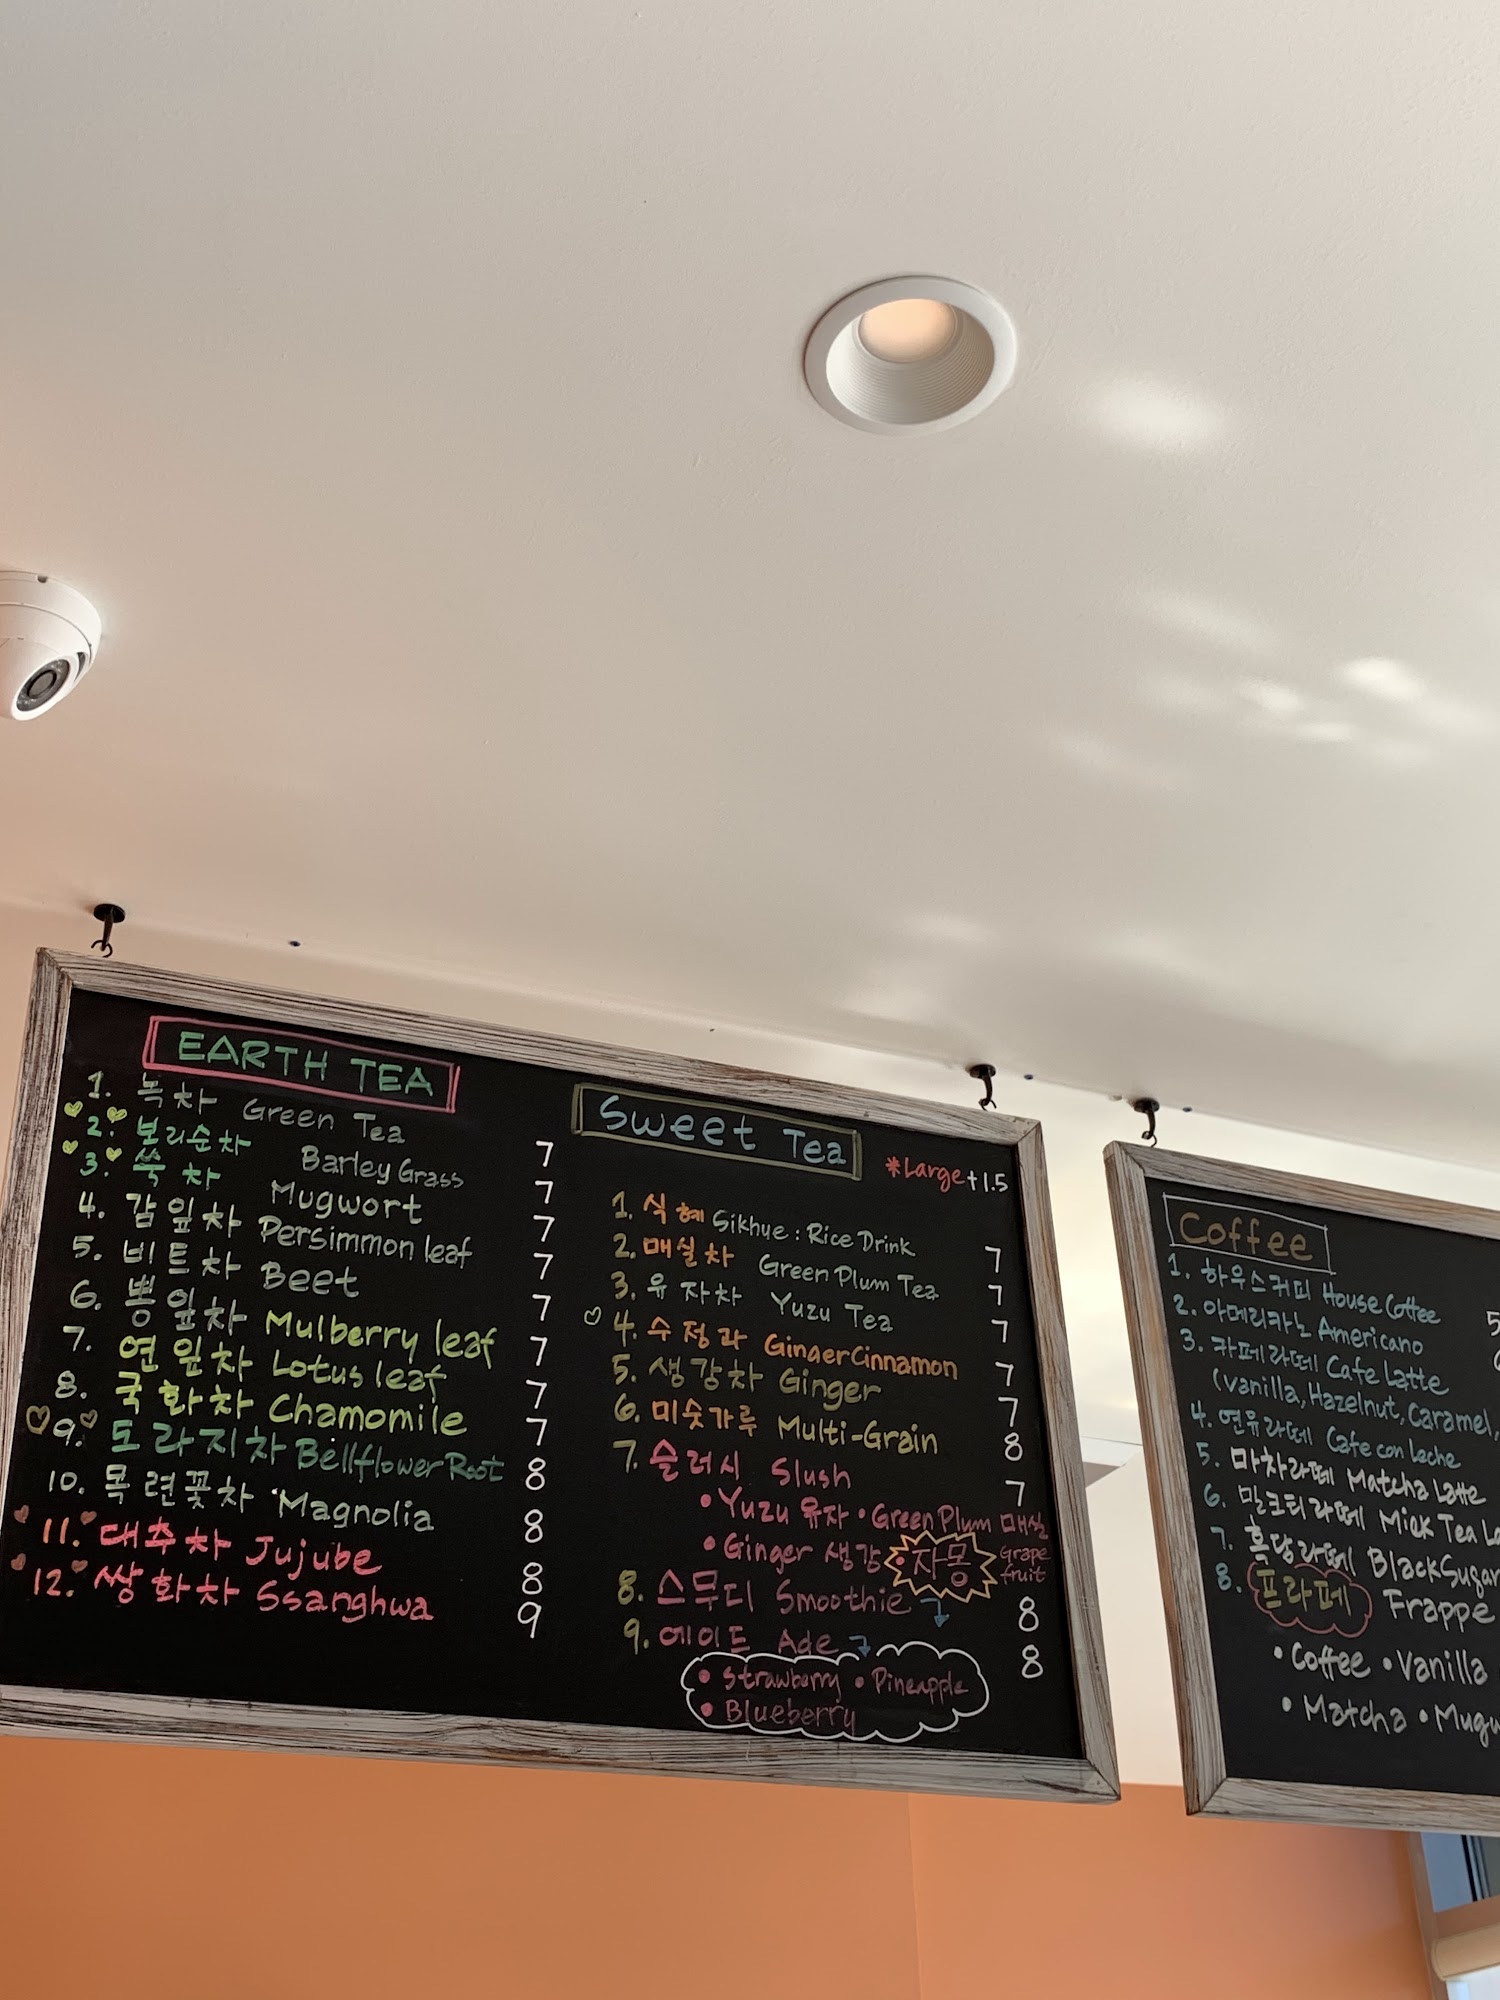 EARTH TEA
1. 녹차 Green Tea 7
2. 보리순차 Barley Grass 7
3. 쑥차 Mugwort 7
4. 감잎차 Persimmon leaf 7
5. 비트차 Beet 7
6. 뽕잎차 Mulberry leaf 7
7. 연잎차 Lotus leaf 7
8. 국화차 Chamomile 7
9. 도라지차 Bellflower Root 8
10. 목련꽃차 Magnolia 8
11. 대추차 Jujube 8
12. 쌍화차 Ssanghwa 9
Sweet Tea
*Large+1.5
1. 식혜 Sikhye: Rice Drink 7
2. 매실차 Green Plum Tea 7
3. 유자차 Yuzu Tea 7
4. 수정과 Ginger Cinnamon 7
5. 생강차 Ginger 7
6. 미숫가루 Multi-Grain 8
7. 슬러시 Slush 7
• Yuzu 유자 • Green Plum 매실
• Ginger 생강 • 자몽 Grape fruit
8. 스무디 Smoothie 8
9. 에이드 Ade 8
• Strawberry • Pineapple
• Blueberry
Coffee
1. 하우스커피 House Coffee 5
2. 아메리카노 Americano
3. 카페라떼 Cafe Latte
(Vanilla, Hazelnut, Caramel,
4. 연유라떼 Cafe con Leche
5. 마차라떼 Matcha Latte
6. 밀크티라떼 Milk Tea
7. 흑당라떼 BlackSugar
8. 프라페 Frappe
• Coffee • Vanilla
• Matcha